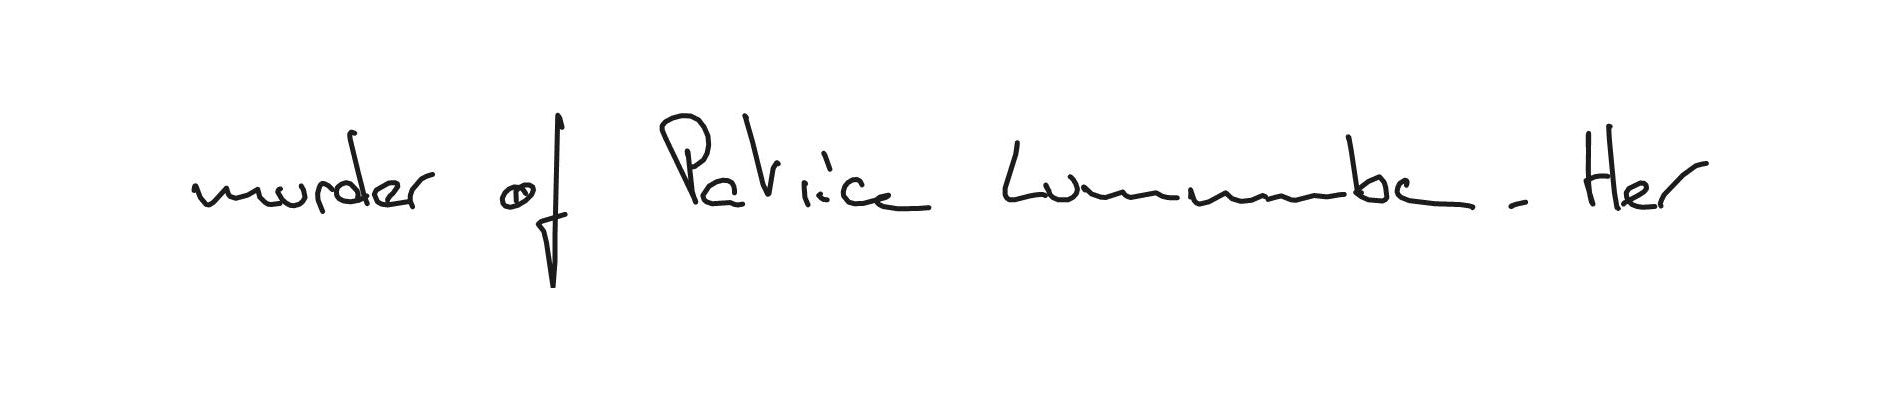 murder of Patrice Lumumba. Her